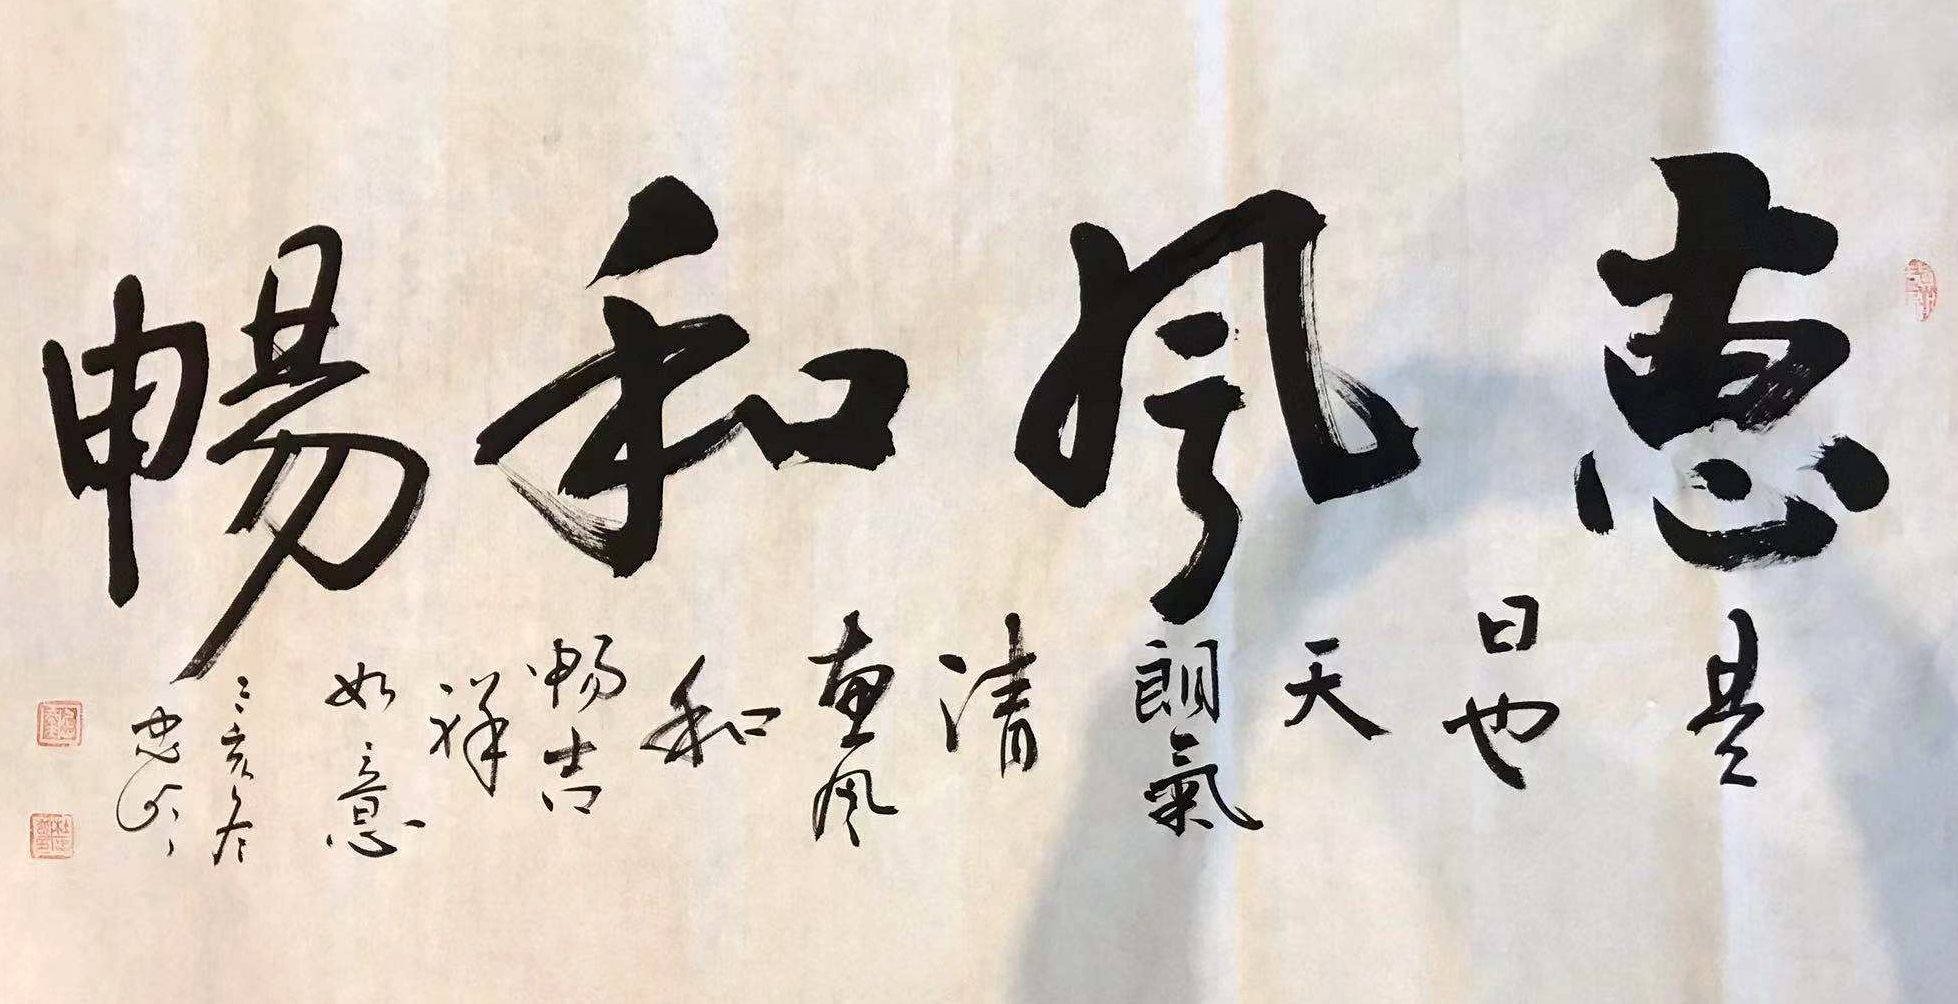 惠風和暢
是
日也
天
朗氣
清
惠風
和
暢吉
祥
如意
亥冬